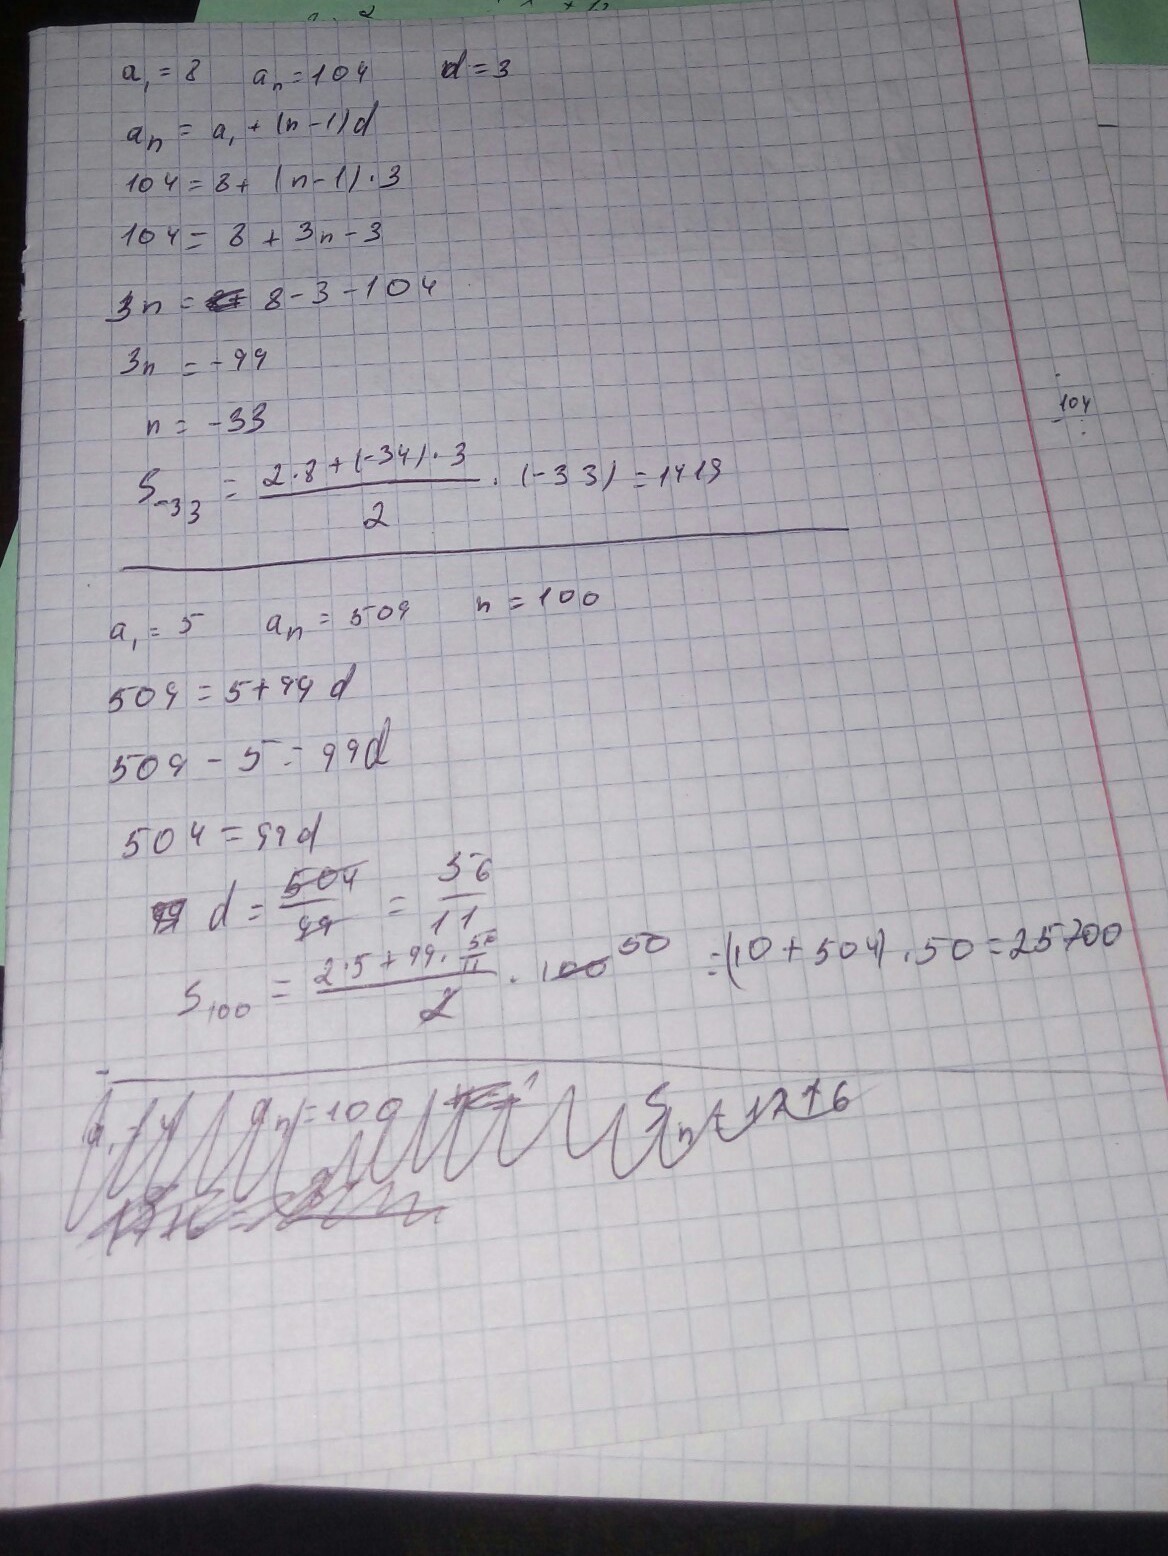 a₁ = 8 aₙ = 104 d = 3
aₙ = a₁ + (n-1)d
104 = 8 + (n-1)·3
104 = 8 + 3n - 3
3n = 8 - 3 - 104
3n = -99
n = -33
S₋₃₃ = (2·8 + (-34)·3)/2 · (-33) = 1419
104
a₁ = 5 aₙ = 509 n = 100
509 = 5 + 99d
509 - 5 = 99d
504 = 99d
d = 504/99 = 56/11
S₁₀₀ = (2·5 + 99·56/11)/2 · 100 50 = (10 + 504)·50 = 25700
aₙ = 109 Sₙ